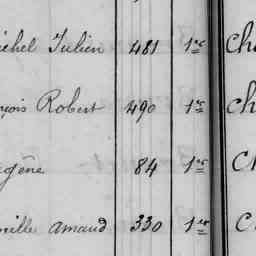 ichel Julien 481 1re Cha
nçois Robert 490 1re Ch
gène 84 1re C
mille Amand 330 1re C